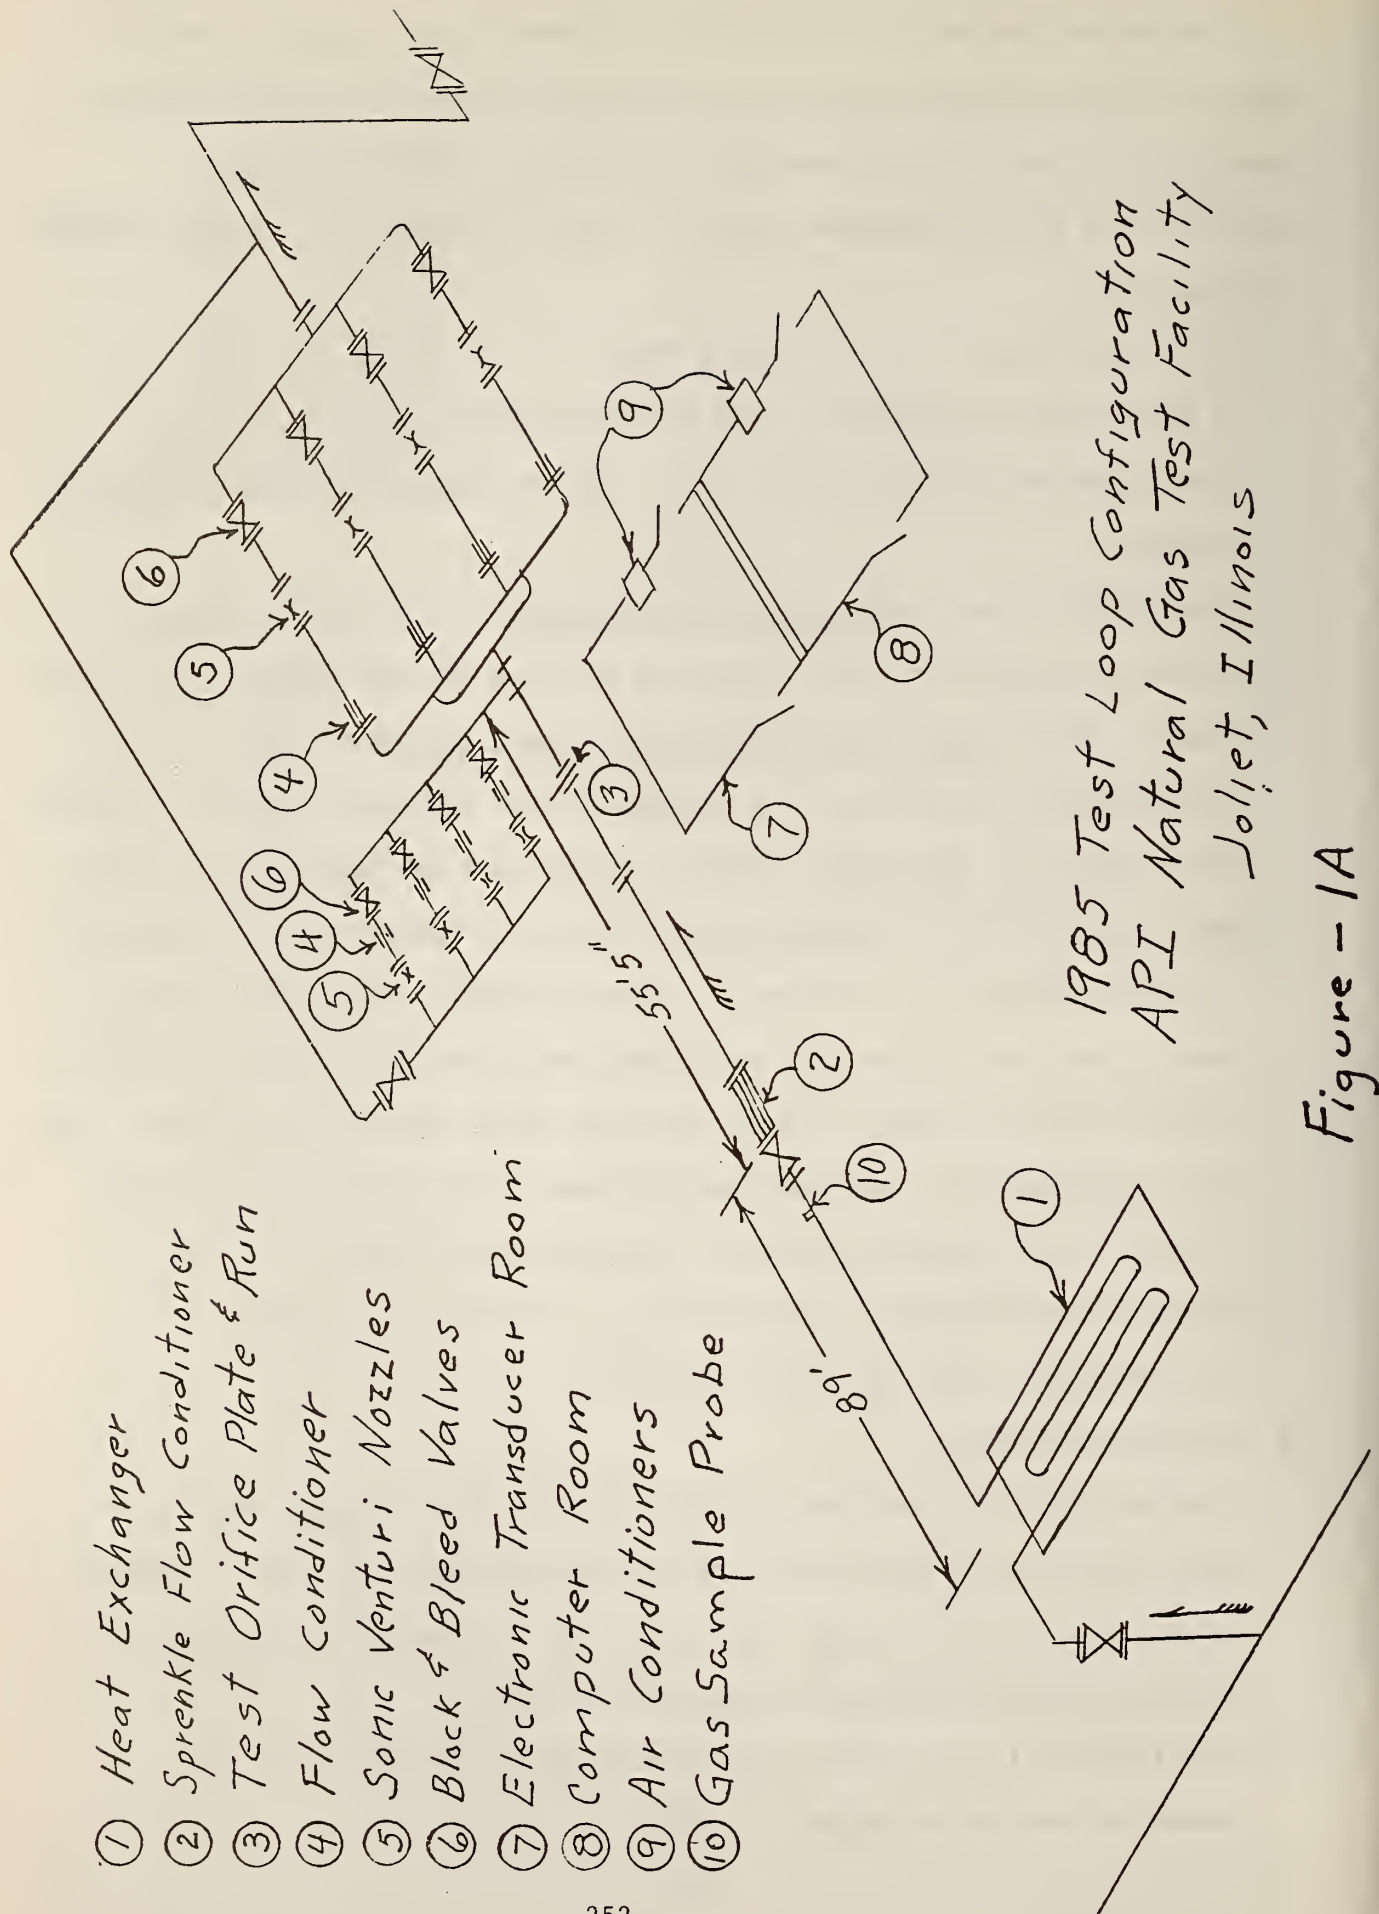 ① Heat Exchanger
② Sprenkle Flow Conditioner
③ Test Orifice Plate & Run
④ Flow Conditioner
⑤ Sonic Venturi Nozzles
⑥ Block & Bleed Valves
⑦ Electronic Transducer Room
⑧ Computer Room
⑨ Air Conditioners
⑩ Gas Sample Probe
⑥
⑤
④
⑥
④
⑤
⑨
③
⑧
⑦
55'5"
②
⑩
89'
①
1985 Test Loop Configuration
API Natural Gas Test Facility
Joliet, Illinois
Figure - 1A